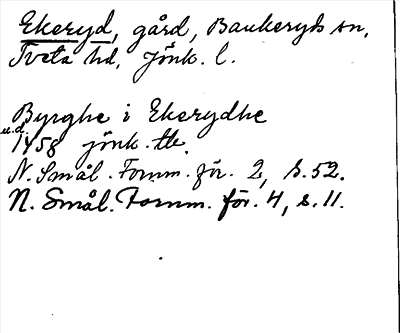 Ekeryd, gård, Bankeryds sn,
Tveta hd, Jönk. l.
Byrghe i Ekerydhe
u.d. 1458 jönk. tb.
N. Smål. Fornm. för. 2, s. 52.
N. Smål. Fornm. för. 4, s. 11.